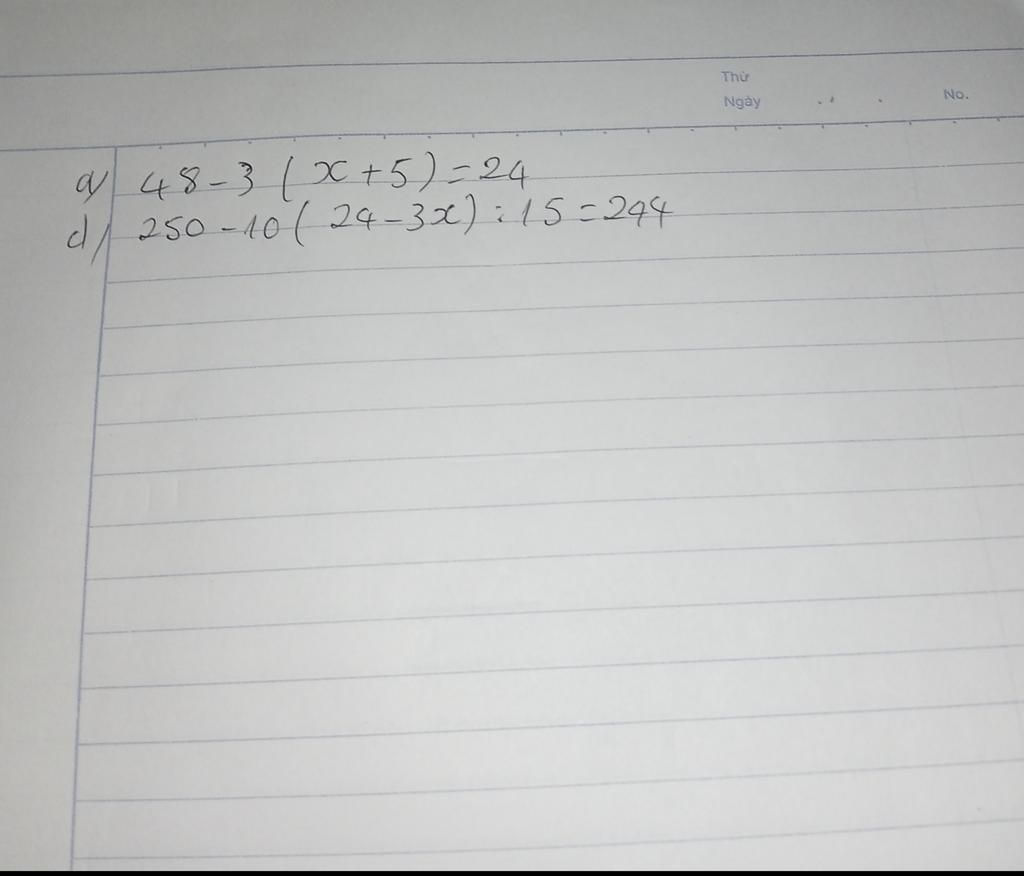 Thứ
Ngày . . . No.
a/ 48-3(x+5)=24
d/ 250-10(24-3x):15=244